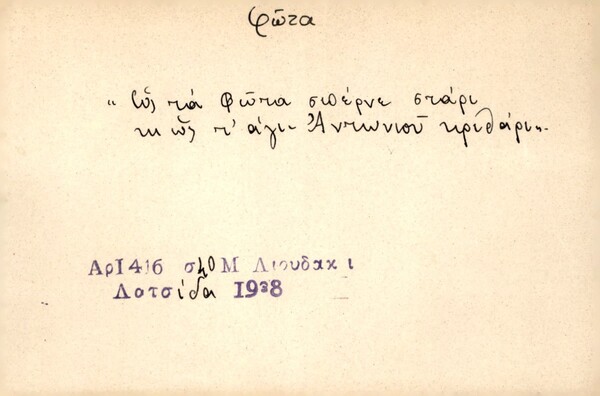 Φῶτα
„ Ὣς τὰ Φῶτα σπέρνε στάρι
κι ὣς τ' ἁγι- Ἀντωνιοῦ κριθάρι".
Αρ1416 σ40 Μ Λιουδακι
Λοτσίδα 1938